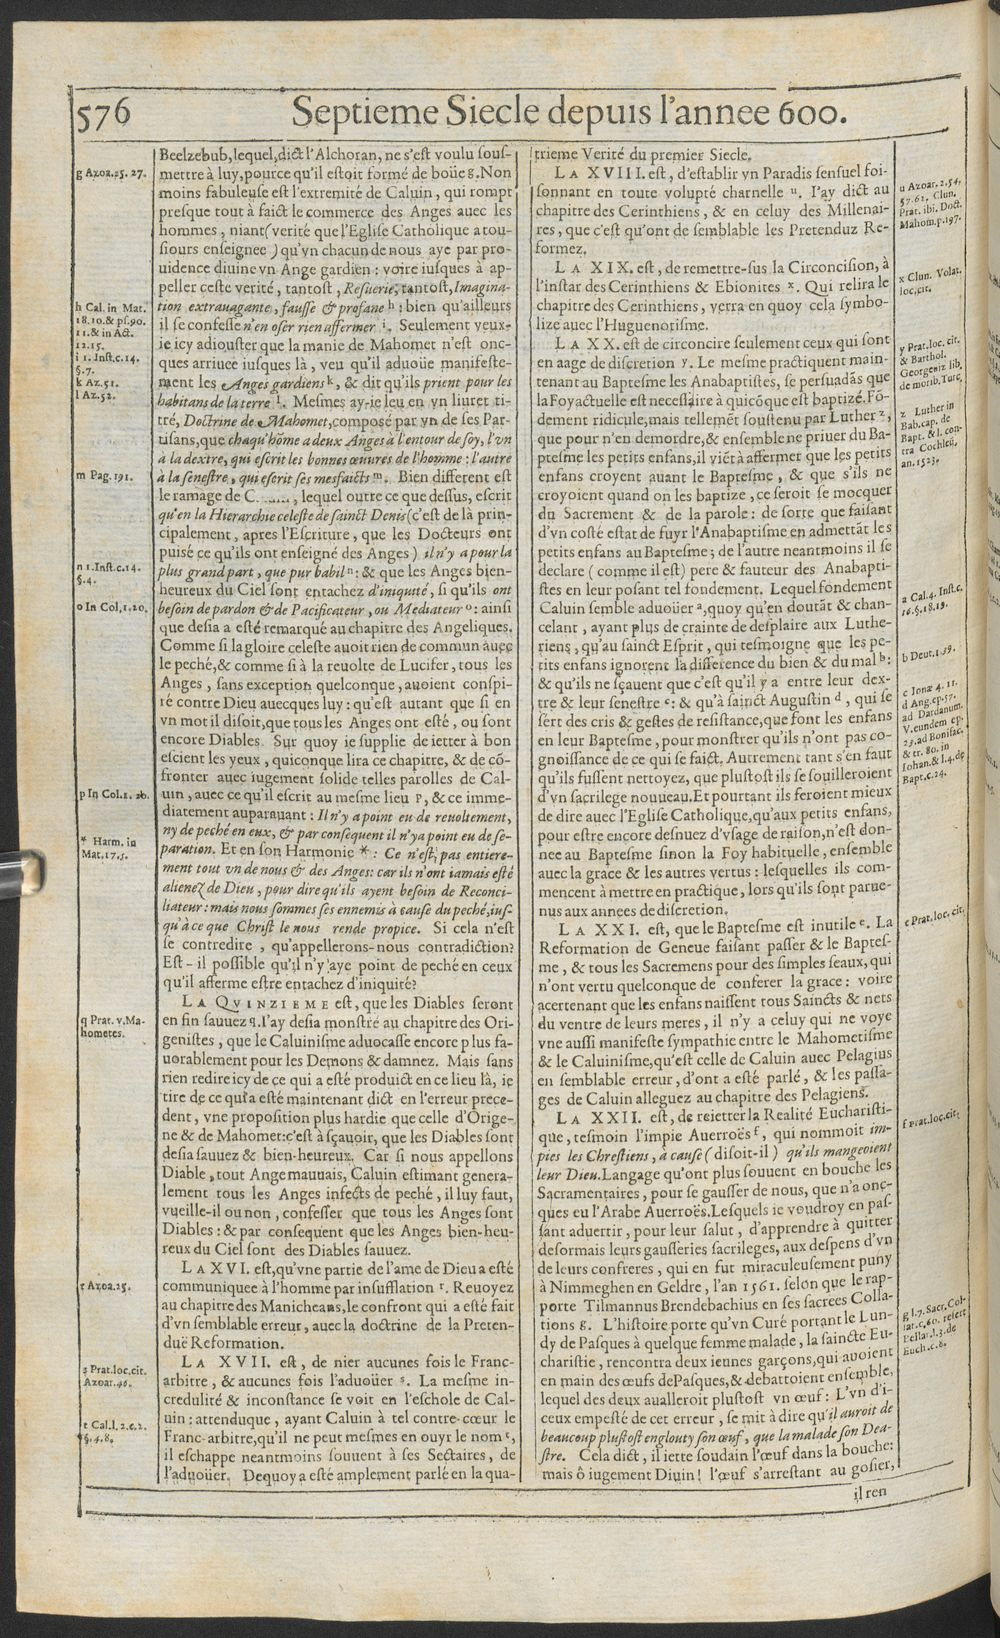 576
Septieme Siecle depuis l'annee 600.
Beelzebub, lequel, dict l'Alchoran, ne s'est voulu sous-
mettre à luy, pource qu'il estoit formé de boüe g. Non
moins fabuleuse est l'extremité de Caluin, qui rompt
presque tout à faict le commerce des Anges auec les
hommes, niant (verité que l'Eglise Catholique a tou-
siours enseignee) qu'vn chacun de nous aye par pro-
uidence diuine vn Ange gardien : voire iusques à ap-
peller ceste verité, tantost, Resuerie, tantost, Imagina-
tion extrauagante, fausse & profane h : bien qu'ailleurs
il se confesse n'en oser rien affermer i. Seulement veux-
ie icy adiouster que la manie de Mahomet n'est onc-
ques arriuee iusques là, veu qu'il aduoüe manifeste-
ment les Anges gardiens k, & dit qu'ils prient pour les
habitans de la terre l. Mesmes ay-ie leu en vn liuret ti-
tré, Doctrine de Mahomet, composé par vn de ses Par-
tisans, que chaqu'hôme a deux Anges à l'entour de soy, l'vn
à la dextre, qui escrit les bonnes œuures de l'homme : l'autre
à la senestre, qui escrit ses mesfaicts m. Bien different est
le ramage de C......., lequel outre ce que dessus, escrit
qu'en la Hierarchie celeste de sainct Denis (c'est de là prin-
cipalement, apres l'Escriture, que les Docteurs ont
puisé ce qu'ils ont enseigné des Anges) il n'y a pour la
plus grand part, que pur babil n : & que les Anges bien-
heureux du Ciel sont entachez d'iniquité, si qu'ils ont
besoin de pardon & de Pacificateur, ou Mediateur o : ainsi
que desia a esté remarqué au chapitre des Angeliques.
Comme si la gloire celeste auoit rien de commun auec
le peché, & comme si à la reuolte de Lucifer, tous les
Anges, sans exception quelconque, auoient conspi-
ré contre Dieu auecques luy : qu'est autant que si en
vn mot il disoit, que tous les Anges ont esté, ou sont
encore Diables. Sur quoy ie supplie de ietter à bon
escient les yeux, quiconque lira ce chapitre, & de cō-
fronter auec iugement solide telles parolles de Cal-
uin, auec ce qu'il escrit au mesme lieu p, & ce imme-
diatement auparauant : Il n'y a point eu de reuoltement,
ny de peché en eux, & par consequent il n'ya point eu de se-
paration. Et en son Harmonie * : Ce n'est, pas entiere-
ment tout vn de nous & des Anges : car ils n'ont iamais esté
alienez de Dieu, pour dire qu'ils ayent besoin de Reconci-
liateur : mais nous sommes ses ennemis à cause du peché, ius-
qu'à ce que Christ le nous rende propice. Si cela n'est
se contredire, qu'appellerons-nous contradiction?
Est-il possible qu'il n'y'aye point de peché en ceux
qu'il afferme estre entachez d'iniquité?
LA QVINZIEME est, que les Diables seront
en fin sauuez q. I'ay desia monstré au chapitre des Ori-
genistes, que le Caluinisme aduocasse encore plus fa-
uorablement pour les Demons & damnez. Mais sans
rien redire icy de ce qui a esté produict en ce lieu là, ie
tire de ce qui'a esté maintenant dict en l'erreur prece-
dent, vne proposition plus hardie que celle d'Orige-
ne & de Mahomet : c'est à sçauoir, que les Diables sont
desia sauuez & bien-heureux. Car si nous appellons
Diable, tout Ange mauuais, Caluin estimant genera-
lement tous les Anges infects de peché, il luy faut,
vueille-il ou non, confesser que tous les Anges sont
Diables : & par consequent que les Anges bien-heu-
reux du Ciel sont des Diables sauuez.
LA XVI. est, qu'vne partie de l'ame de Dieu a esté
communiquee à l'homme par insufflation r. Reuoyez
au chapitre des Manicheans, le confront qui a esté fait
d'vn semblable erreur, auec la doctrine de la Preten-
duë Reformation.
LA XVII. est, de nier aucunes fois le Franc-
arbitre, & aucunes fois l'aduoüer s. La mesme in-
credulité & inconstance se voit en l'eschole de Cal-
uin : attenduque, ayant Caluin à tel contre-cœur le
Franc-arbitre, qu'il ne peut mesmes en ouyr le nom t,
il eschappe neantmoins souuent à ses Sectaires, de
l'aduoüer. Dequoy a esté amplement parlé en la qua-
g Azoa.25. 27.
h Cal. in Mat.
18.10.& ps.90.
11.& in Act.
12.15.
i 1. Inst.c.14.
§.7.
k Az.51.
l Az.52.
m Pag. 191.
n 1.Inst.c.14.
§.4.
o In Col,1.20.
p In Col.1. 20.
* Harm. in
Mat.17.5.
q Prat. v.Ma-
hometes.
r Azoa.25.
s Prat.loc.cit.
Azoar.46.
t Cal.l. 2.c.2.
§.4.8.
trieme Verité du premier Siecle.
LA XVIII. est, d'establir vn Paradis sensuel foi-
sonnant en toute volupté charnelle u. I'ay dict au
chapitre des Cerinthiens, & en celuy des Millenai-
res, que c'est qu'ont de semblable les Pretenduz Re-
formez.
LA XIX. est, de remettre-sus la Circoncision, à
l'instar des Cerinthiens & Ebionites x. Qui relira le
chapitre des Cerinthiens, verra en quoy cela symbo-
lize auec l'Huguenotisme.
LA XX. est de circoncire seulement ceux qui sont
en aage de discretion y. Le mesme practiquent main-
tenant au Baptesme les Anabaptistes, se persuadās que
la Foy actuelle est necessaire à quicōque est baptizé. Fō-
dement ridicule, mais tellemēt soustenu par Luther z,
que pour n'en demordre, & ensemble ne priuer du Ba-
ptesme les petits enfans, il viēt à affermer que les petits
enfans croyent auant le Baptesme, & que s'ils ne
croyoient quand on les baptize, ce seroit se mocquer
du Sacrement & de la parole : de sorte que faisant
d'vn costé estat de fuyr l'Anabaptisme en admettāt les
petits enfans au Baptesme ; de l'autre neantmoins il se
declare (comme il est) pere & fauteur des Anabapti-
stes en leur posant tel fondement. Lequel fondement
Caluin semble aduoüer a, quoy qu'en doutāt & chan-
celant, ayant plus de crainte de desplaire aux Luthe-
riens, qu'au sainct Esprit, qui tesmoigne que les pe-
tits enfans ignorent la difference du bien & du mal b :
& qu'ils ne sçauent que c'est qu'il y a entre leur dex-
tre & leur senestre c : & qu'à sainct Augustin d, qui se
sert des cris & gestes de resistance, que font les enfans
en leur Baptesme, pour monstrer qu'ils n'ont pas co-
gnoissance de ce qui se faict. Autrement tant s'en faut
qu'ils fussent nettoyez, que plustost ils se souilleroient
d'vn sacrilege nouueau. Et pourtant ils feroient mieux
de dire auec l'Eglise Catholique, qu'aux petits enfans,
pour estre encore desnuez d'vsage de raison, n'est don-
nee au Baptesme sinon la Foy habituelle, ensemble
auec la grace & les autres vertus : lesquelles ils com-
mencent à mettre en practique, lors qu'ils sont parue-
nus aux annees de discretion.
LA XXI. est, que le Baptesme est inutile e. La
Reformation de Geneue faisant passer & le Baptes-
me, & tous les Sacremens pour des simples seaux, qui
n'ont vertu quelconque de conferer la grace : voire
acertenant que les enfans naissent tous Saincts & nets
du ventre de leurs meres, il n'y a celuy qui ne voye
vne aussi manifeste sympathie entre le Mahometisme
& le Caluinisme, qu'est celle de Caluin auec Pelagius
en semblable erreur, d'ont a esté parlé, & les passa-
ges de Caluin alleguez au chapitre des Pelagiens.
LA XXII. est, de reietter la Realité Eucharisti-
que, tesmoin l'impie Auerroës f, qui nommoit im-
pies les Chrestiens, à cause (disoit-il) qu'ils mangeoient
leur Dieu. Langage qu'ont plus souuent en bouche les
Sacramentaires, pour se gausser de nous, que n'a onc-
ques eu l'Arabe Auerroës. Lesquels ie voudroy en pas-
sant aduertir, pour leur salut, d'apprendre à quitter
desormais leurs gausseries sacrileges, aux despens d'vn
de leurs confreres, qui en fut miraculeusement puny
à Nimmeghen en Geldre, l'an 1561. selon que le rap-
porte Tilmannus Brendebachius en ses sacrees Colla-
tions g. L'histoire porte qu'vn Curé portant le Lun-
dy de Pasques à quelque femme malade, la saincte Eu-
charistie, rencontra deux ieunes garçons, qui auoient
en main des œufs de Pasques, & debattoient ensemble,
lequel des deux aualleroit plustost vn œuf : L'vn d'i-
ceux empesté de cet erreur, se mit à dire qu'il auroit de
beaucoup plustost englouty son œuf, que la malade son Dea-
stre. Cela dict, il iette soudain l'œuf dans la bouche :
mais ô iugement Diuin ! l'œuf s'arrestant au gosier,
il ren
u Azoar. 2.54.
57.61. Clun.
Prat. ibi. Doct.
Mahom.p.197.
x Clun. Volat.
loc,cit.
y Prat.loc. cit.
& Barthol.
Georgeuiz lib.
de morib.Turc.
z Luther in
Bab.cap. de
Bapt. & l. con-
tra Cochleū.
an.1523.
a Cal.4. Inst.c.
16.§.18.19.
b Deut.1.39.
c Ionæ 4. 11.
d Ang.ep.57.
ad Dardanum.
V.eundem ep.
23.ad Bonifac.
& tr. 80. in
Iohan.& l.4.de
Bapt.c.24.
e Prat.loc.cit.
f Prat.loc.cit.
g l.7. Sacr.Col-
lat.c.60. refert
Bellar.l.3.de
Euch.c.8.